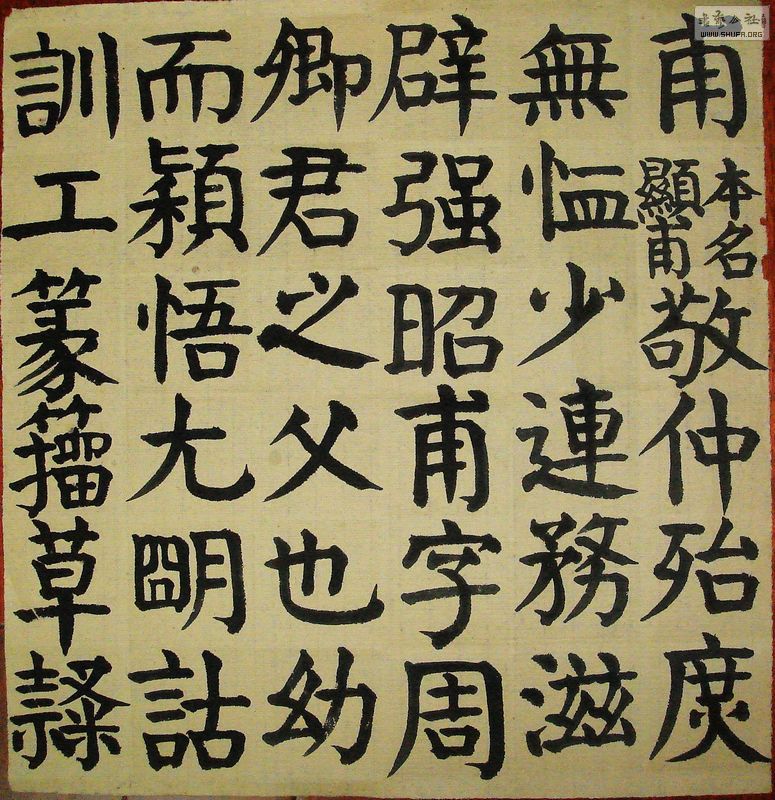 甫本名顯甫敬仲殆庶
無恤少連務滋
辟强昭甫字周
卿君之父也幼
而穎悟尤明詁
訓工篆籀草隸
WWW.SHUFA.ORG